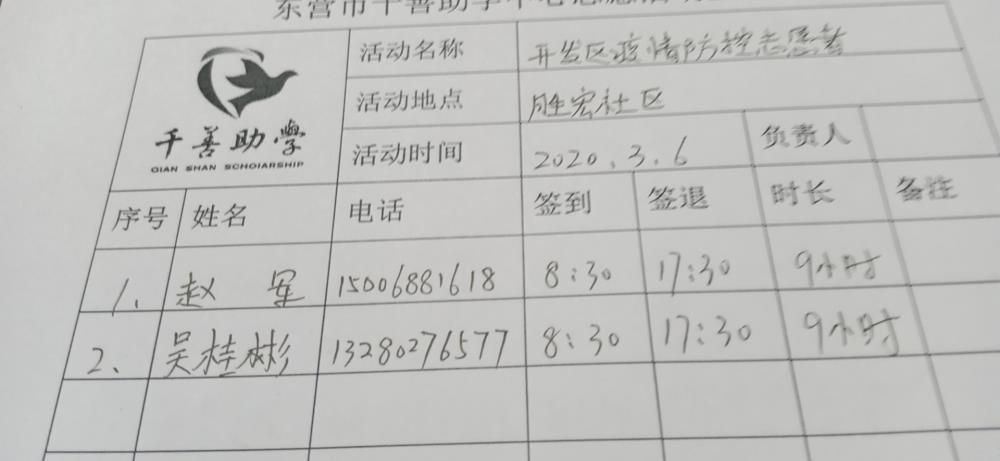 东营市千善助学中心志愿活动
千善助學
QIAN SHAN SCHOIARSHIP
活动名称 开发区疫情防控志愿者
活动地点 胜宏社区
活动时间 2020.3.6 负责人
序号 姓名 电话 签到 签退 时长 备注
1、 赵军 15006881618 8:30 17:30 9小时
2、 吴桂彬 13280276577 8:30 17:30 9小时